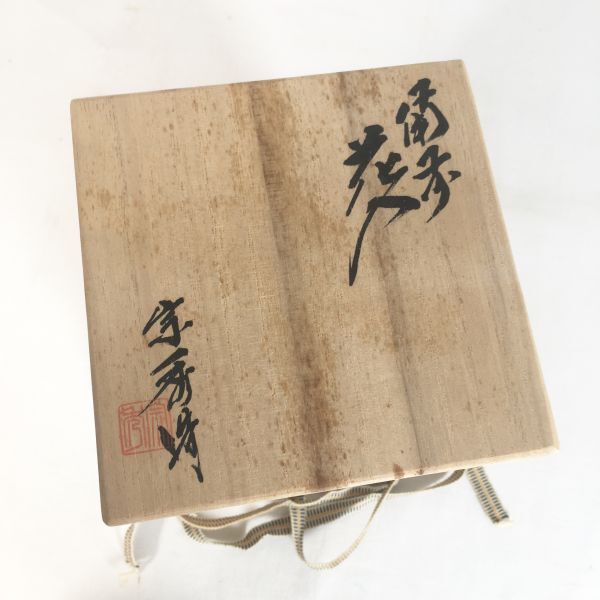 備前
花入
宗秀造